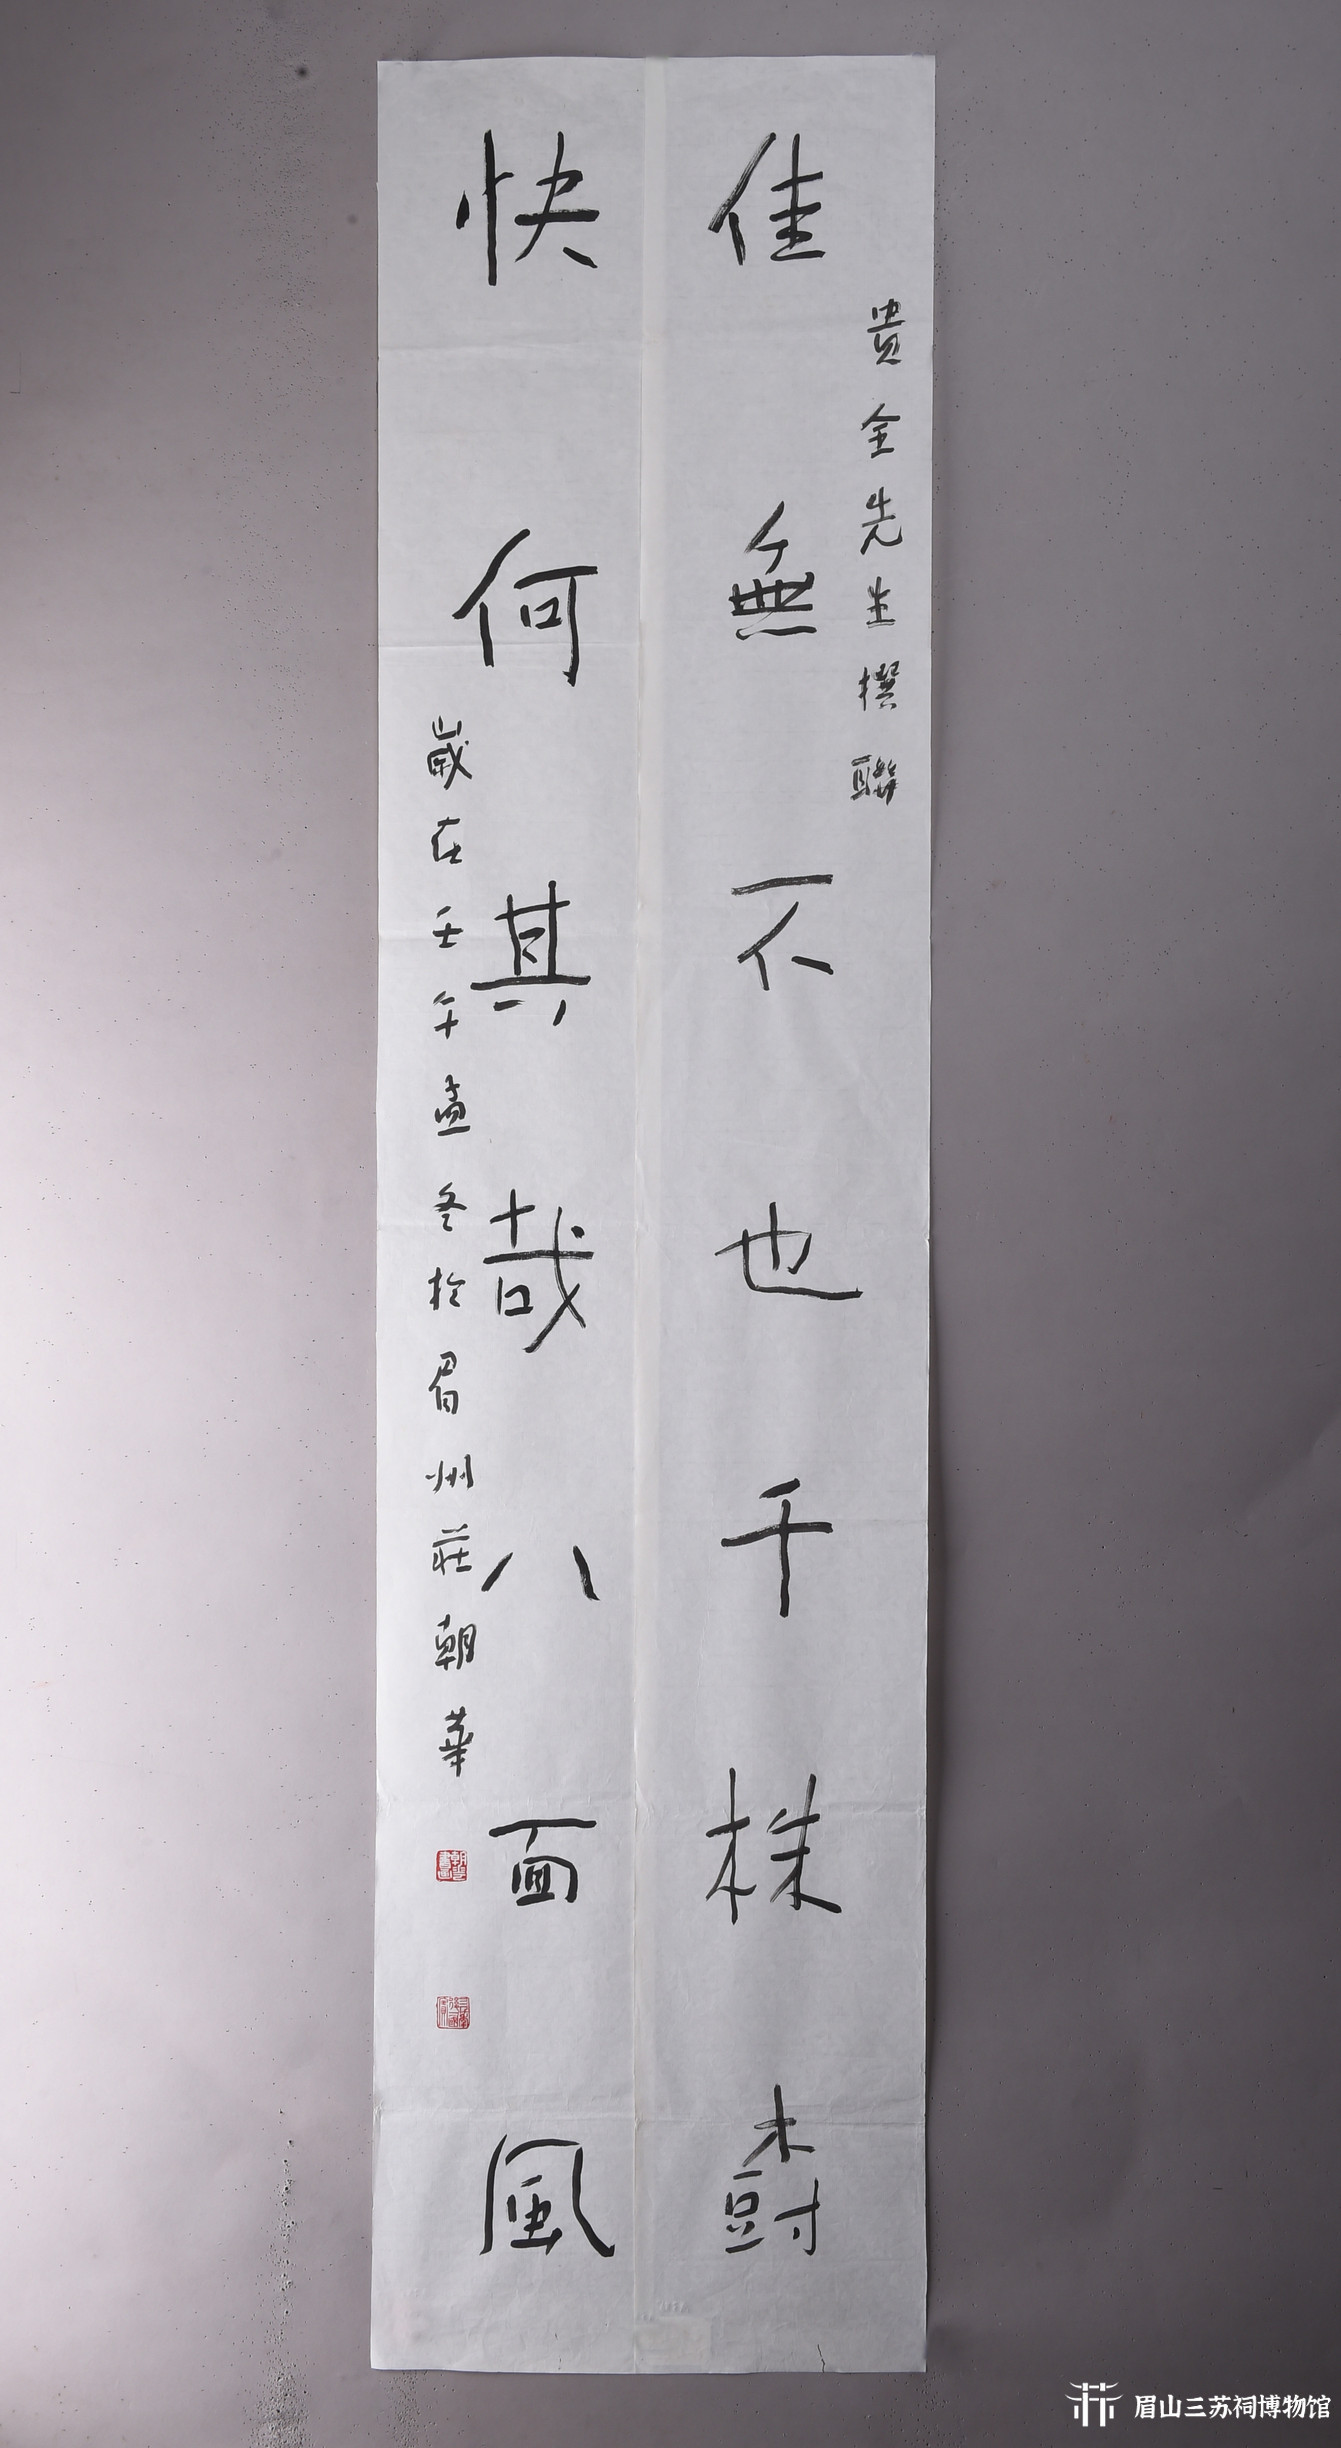 佳無不也千株樹
貴全先生撰聯
快何其哉八面風
歲在壬午孟冬於眉州莊朝華
眉山三苏祠博物馆